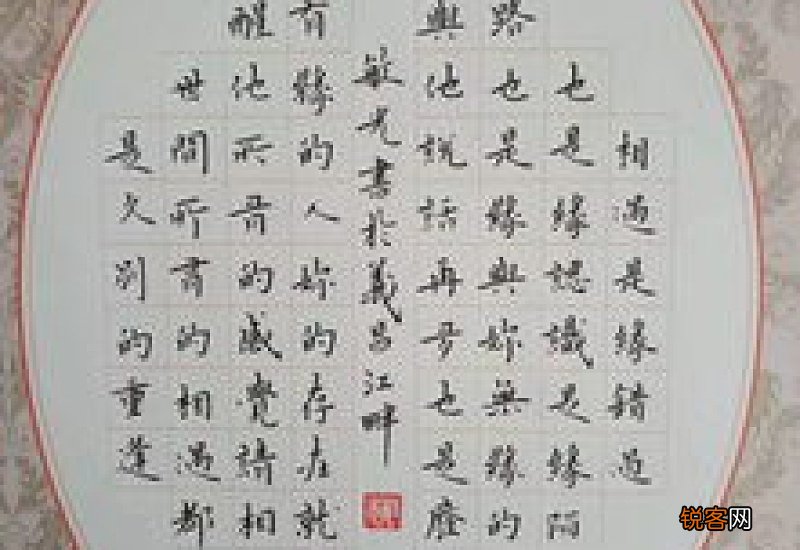 相遇是緣錯過
也是緣認識是緣陌
路也是緣與妳無緣的
與他說話再多也是廢
敏書於義昌江畔
有緣的人妳的存在就
醒他所有的感覺請相
世間所有的相遇都
是久別的重逢
锐客网